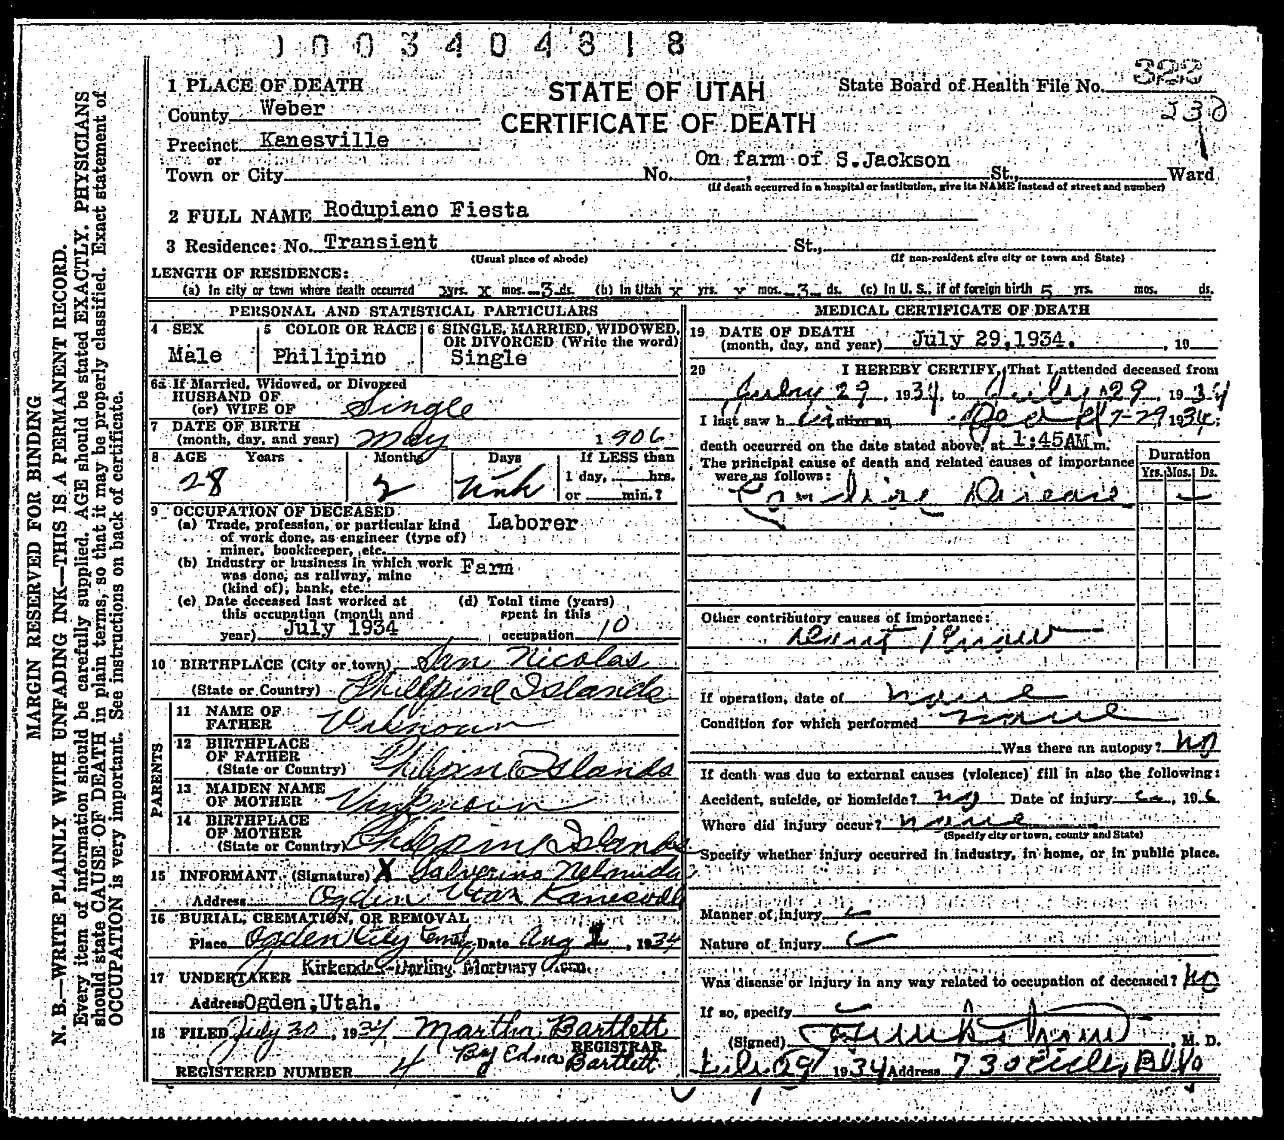 0003404818
1 PLACE OF DEATH
County Weber
Precinct Kanesville
or
Town or City
STATE OF UTAH
CERTIFICATE OF DEATH
State Board of Health File No. 323
230
No. On farm of S.Jackson St., Ward
(If death occurred in a hospital or institution, give its NAME instead of street and number)
2 FULL NAME Rodupiano Fiesta
3 Residence: No. Transient St.,
(Usual place of abode) (If non-resident give city or town and State)
LENGTH OF RESIDENCE:
(a) In city or town where death occurred yrs. x mos. 3 ds. (b) In Utah x yrs. mos. 3 ds. (c) In U. S., if of foreign birth 5 yrs. mos. ds.
PERSONAL AND STATISTICAL PARTICULARS
4 SEX
Male
5 COLOR OR RACE
Philipino
6 SINGLE, MARRIED, WIDOWED,
OR DIVORCED (Write the word)
Single
6a If Married, Widowed, or Divorced
HUSBAND OF
(or) WIFE OF Single
7 DATE OF BIRTH
(month, day, and year) May 1906
8 AGE Years Months Days If LESS than
28 2 Unk 1 day, hrs.
or min.?
9 OCCUPATION OF DECEASED
(a) Trade, profession, or particular kind Laborer
of work done, as engineer (type of)
miner, bookkeeper, etc.
(b) Industry or business in which work Farm
was done, as railway, mine
(kind of), bank, etc.
(c) Date deceased last worked at
this occupation (month and
year) July 1934
(d) Total time (years)
spent in this
occupation 10
10 BIRTHPLACE (City or town) San Nicolas
(State or Country) Phillpine Islands
PARENTS
11 NAME OF
FATHER Unknown
12 BIRTHPLACE
OF FATHER
(State or Country) Philipine Islands
13 MAIDEN NAME
OF MOTHER Unknown
14 BIRTHPLACE
OF MOTHER
(State or Country) Philipine Islands
15 INFORMANT (Signature) X Galverino
Address Ogden Utah Kanesville
16 BURIAL, CREMATION, OR REMOVAL
Place Ogden City Cemt. Date Aug 1, 1934
17 UNDERTAKER Kirkendall-Darling Mortuary
Address Ogden, Utah.
18 FILED July 30, 1934 Martha Bartlett
REGISTRAR
By Edna Bartlett
REGISTERED NUMBER 4
MEDICAL CERTIFICATE OF DEATH
19 DATE OF DEATH
(month, day, and year) July 29,1934. , 19
20 I HEREBY CERTIFY, That I attended deceased from
July 29, 1934, to July 29, 1934
I last saw h im alive on Dead 7-29 1934;
death occurred on the date stated above, at 1:45AM m.
The principal cause of death and related causes of importance
were as follows:
Duration
Yrs. Mos. Ds.
Disease
Other contributory causes of importance:
If operation, date of none
Condition for which performed none
Was there an autopsy? no
If death was due to external causes (violence) fill in also the following:
Accident, suicide, or homicide? no Date of injury , 19
Where did injury occur? none
(Specify city or town, county and State)
Specify whether injury occurred in industry, in home, or in public place.
Manner of injury
Nature of injury
Was disease or injury in any way related to occupation of deceased? No
If so, specify
(Signed) , M. D.
July 29 1934 Address
MARGIN RESERVED FOR BINDING
N. B.—WRITE PLAINLY WITH UNFADING INK—THIS IS A PERMANENT RECORD.
Every item of information should be carefully supplied. AGE should be stated EXACTLY. PHYSICIANS
should state CAUSE OF DEATH in plain terms, so that it may be properly classified. Exact statement of
OCCUPATION is very important. See instructions on back of certificate.